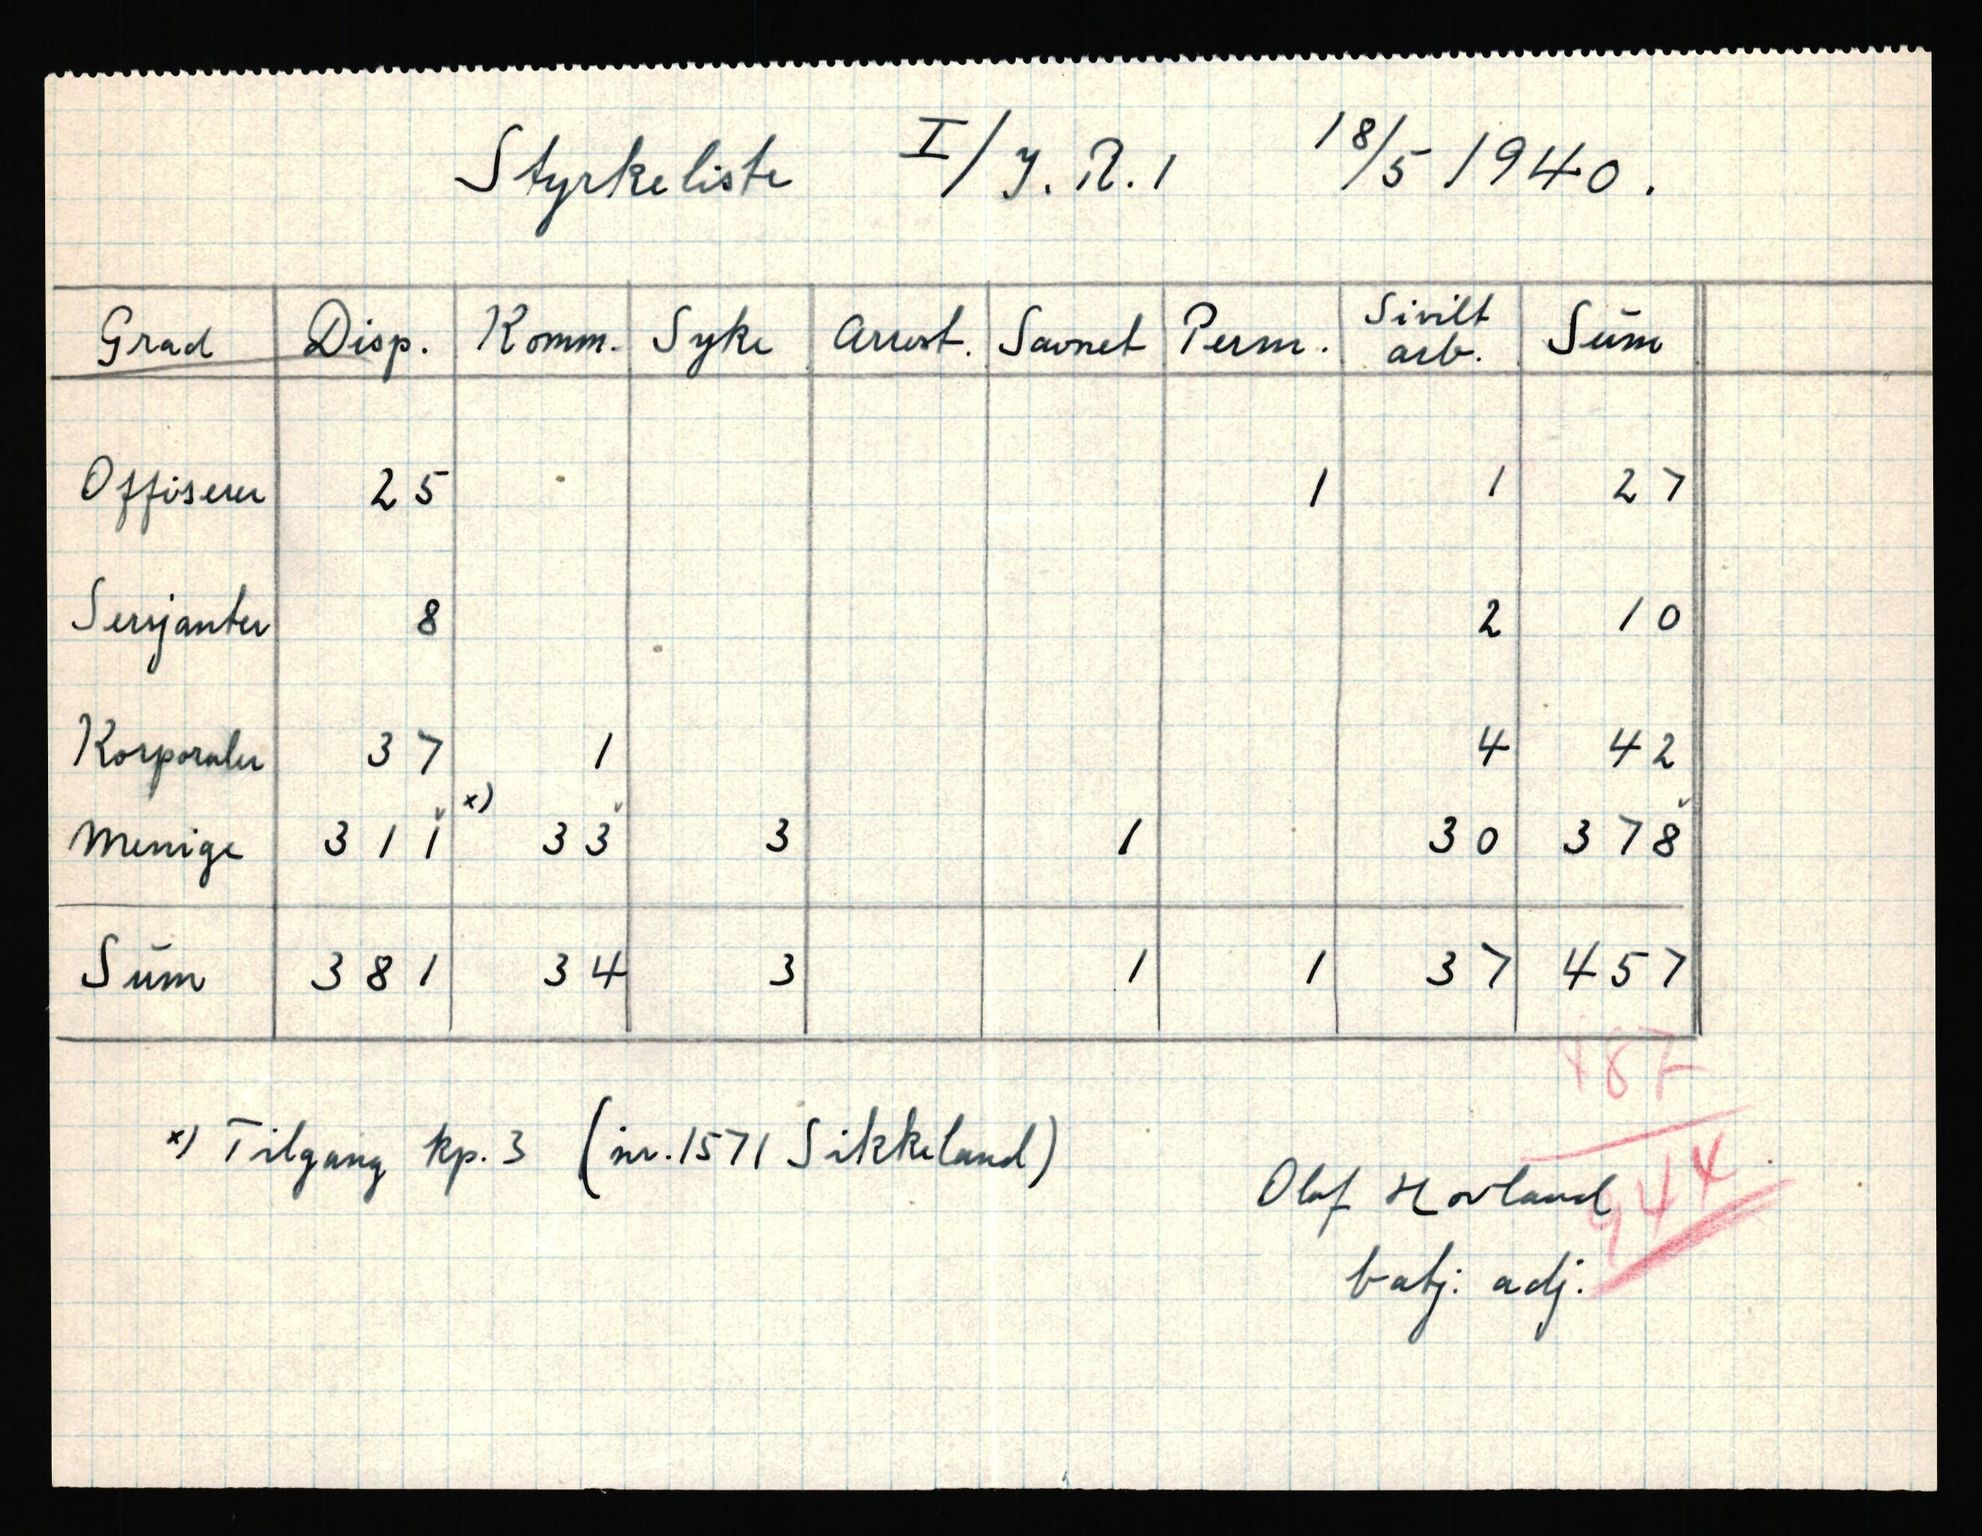 Styrkeliste I/J.R.1 18/5 1940.
Grad Disp. Komm. Syke Arrest. Savnet Perm. Sivilt arb. Sum
Offiserer 25 1 1 27
Sersjanter 8 2 10
Korporaler 37 1 4 42
Menige 311 x) 33 3 1 30 378
Sum 381 34 3 1 1 37 457
487
x) Tilgang kp. 3 (nr. 1571 Sikkeland)
944
Olaf Hovland
batj. adj.